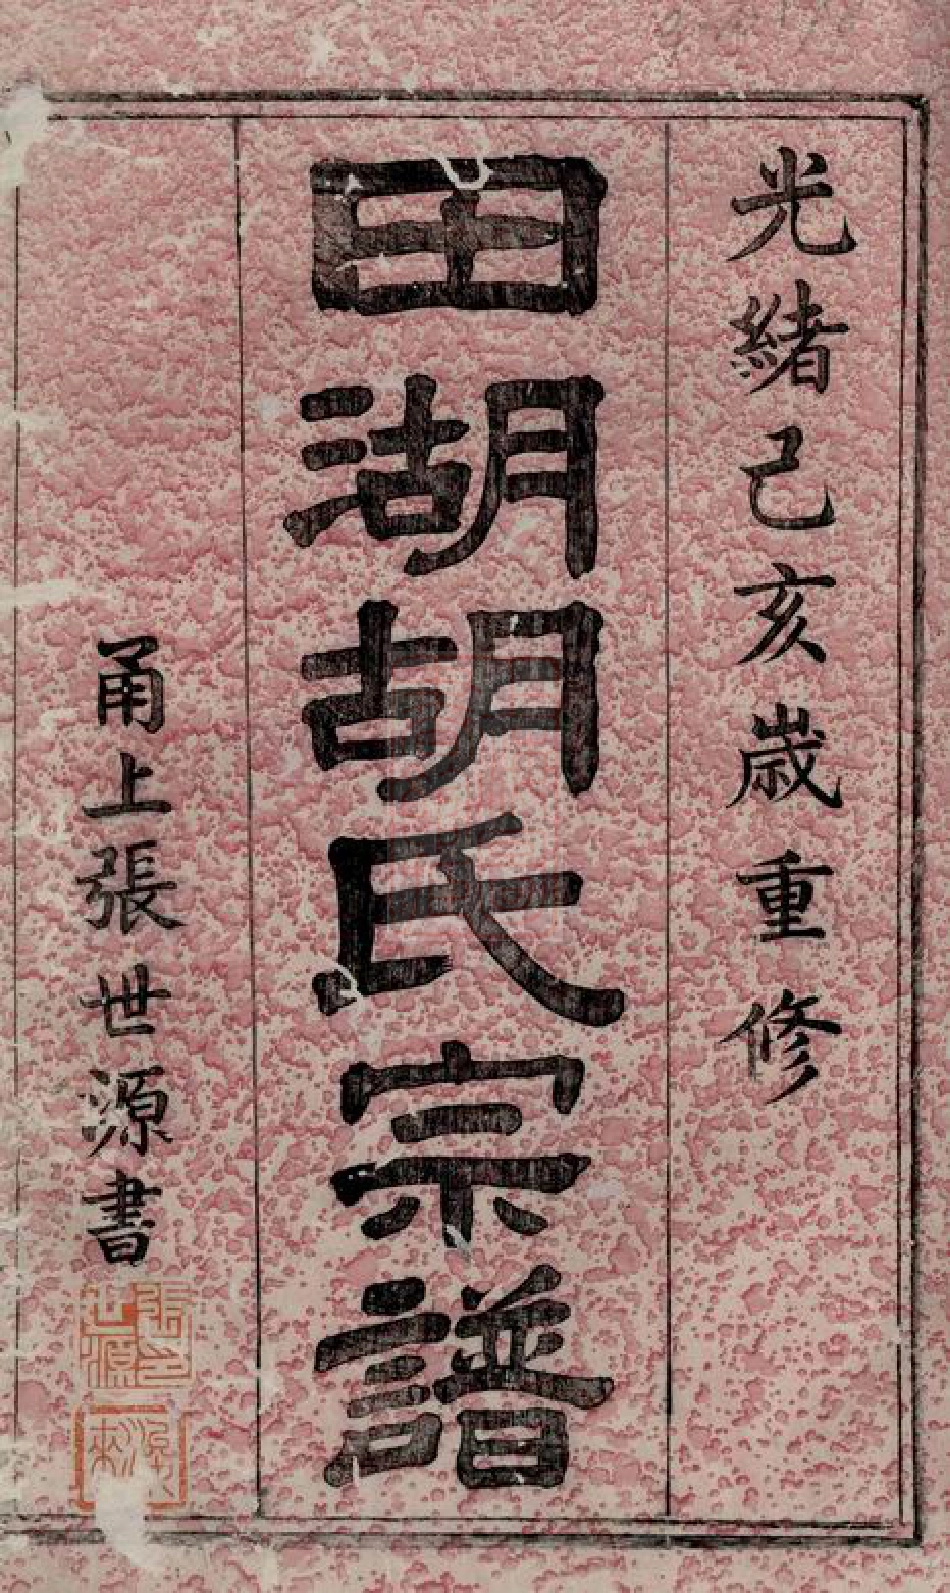 光緒己亥歲重修
田湖胡氏宗譜
甬上張世源書